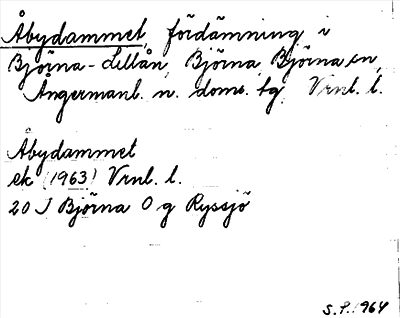 Åbydammet, fördämning i
Björna-Lillån, Björna, Björna sn,
Ångermanl. n. doms. tg. Vrnl. l.
Åbydammet
ek (1963) Vrnl. l.
20 J Björna O g Ryssjö
S.P. 1964